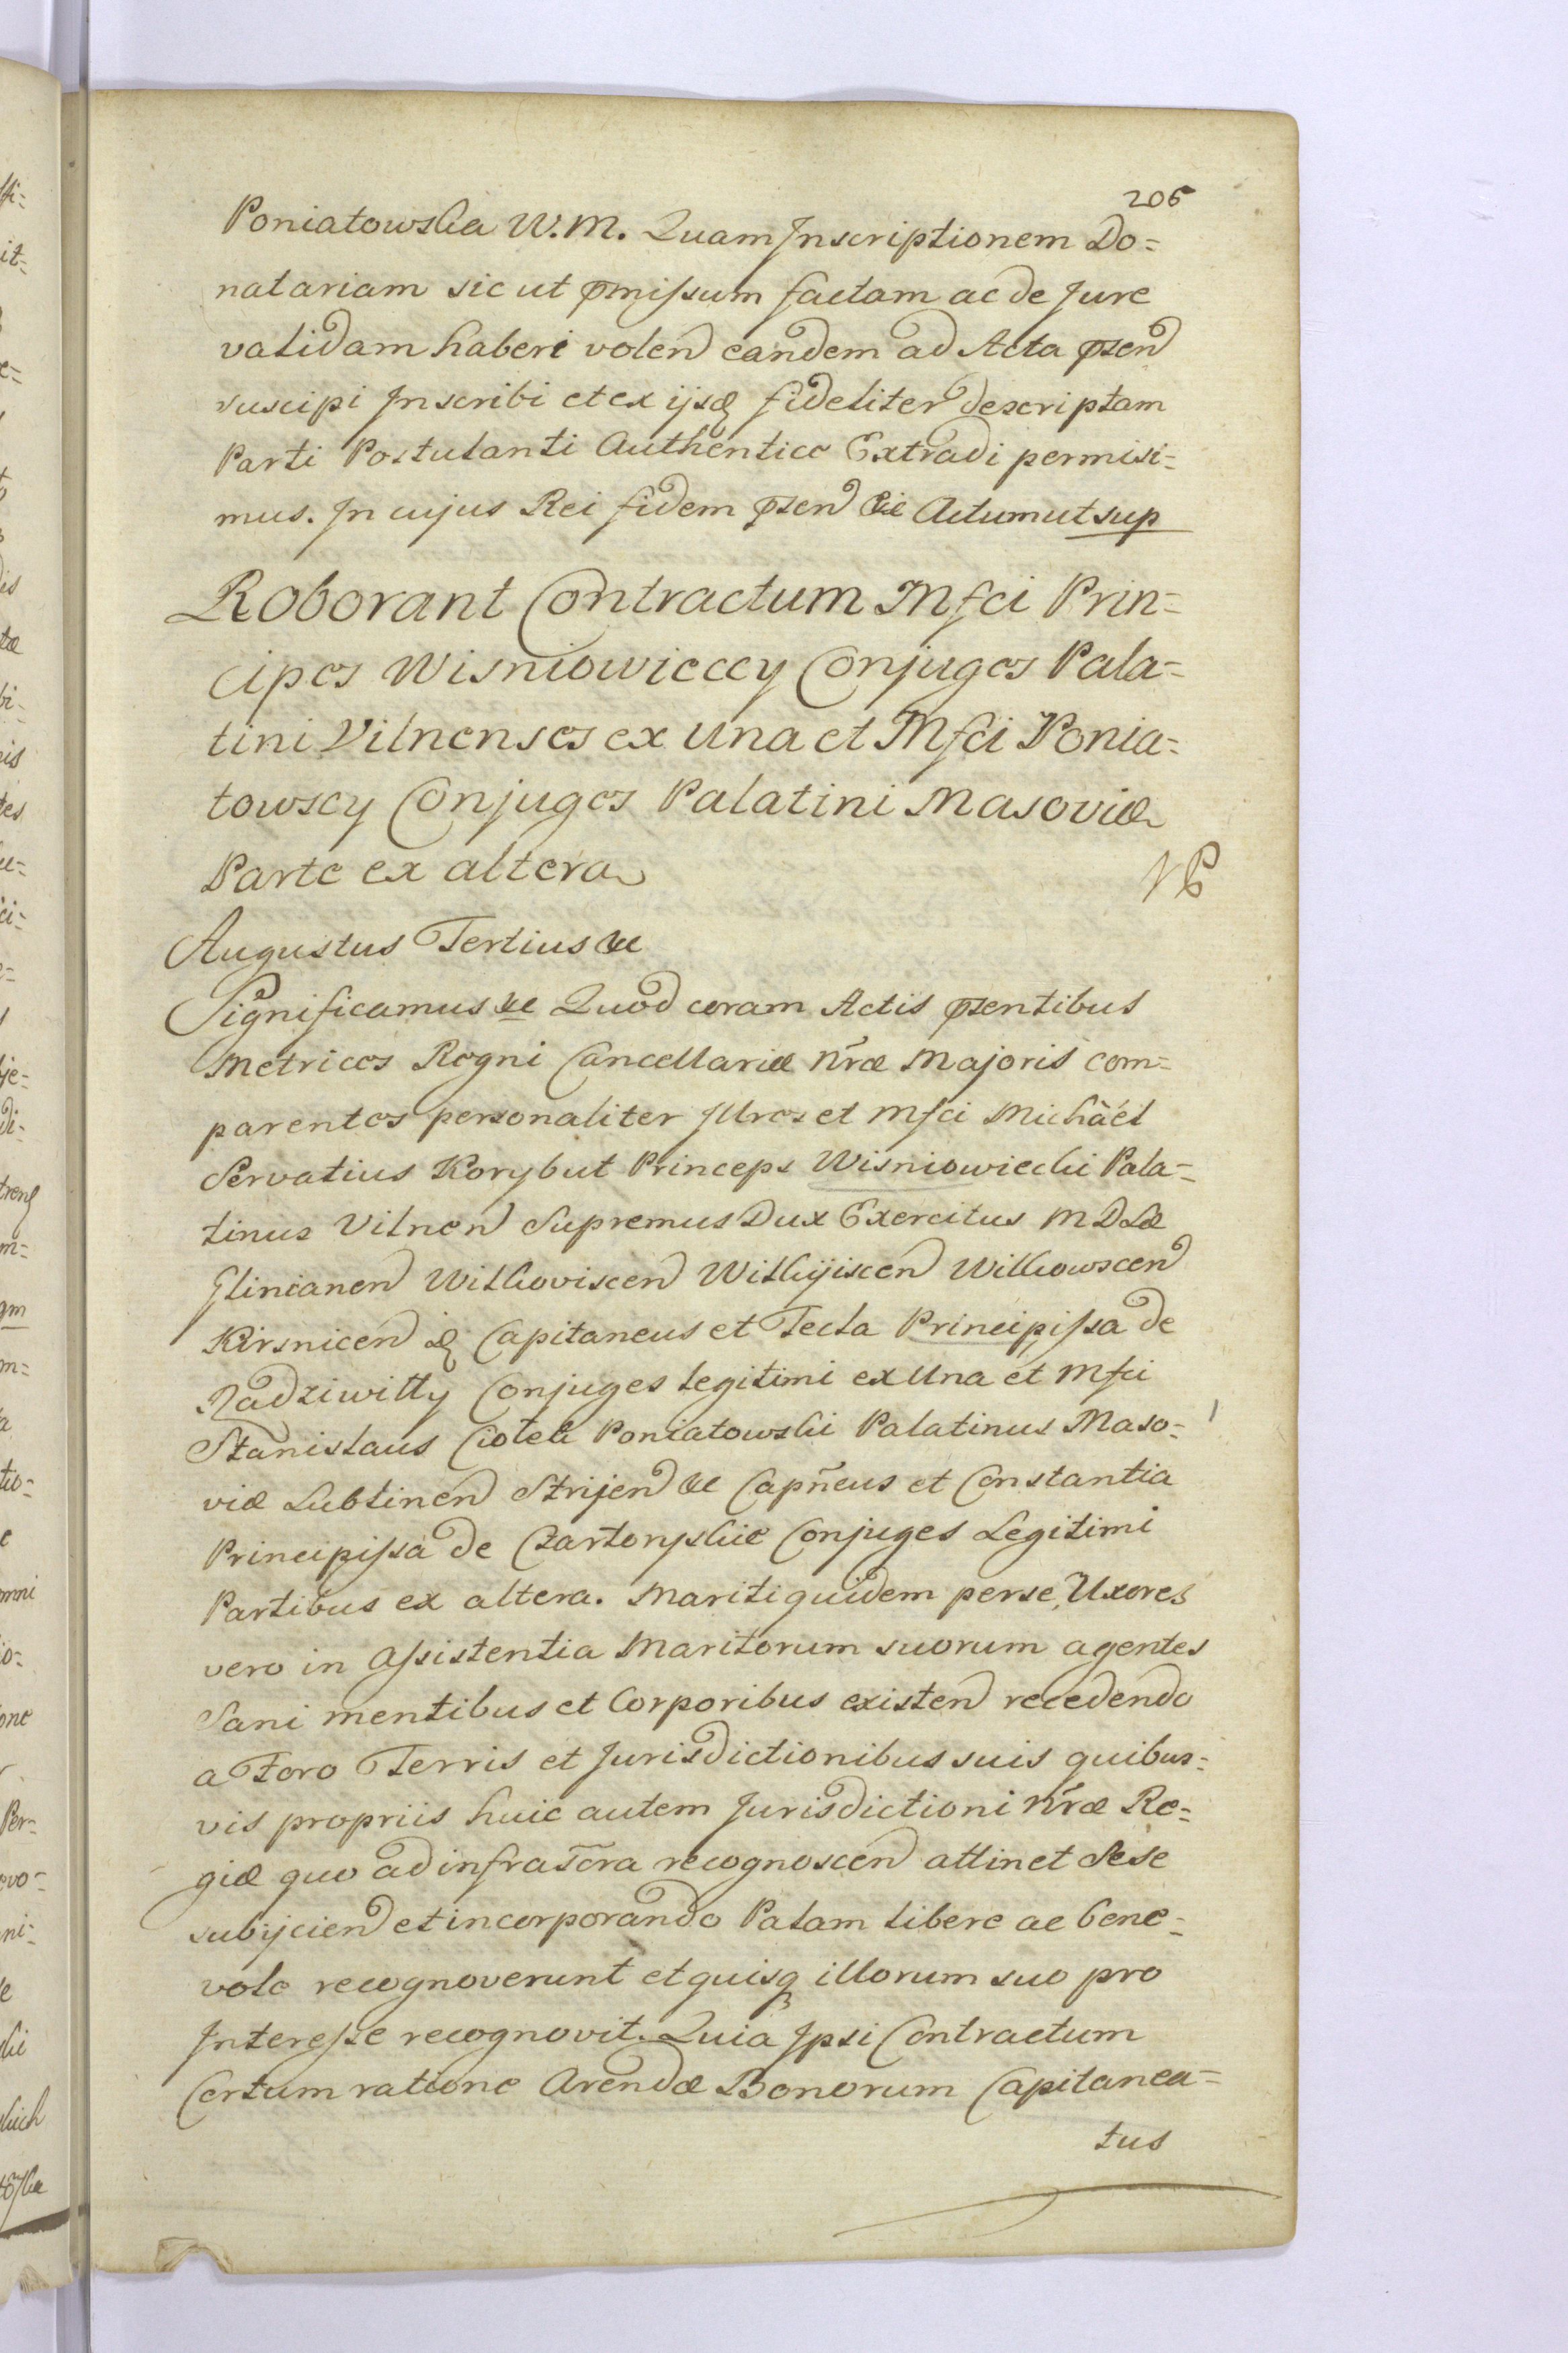 206
Poniatowska W. M. Quam Inscriptionem Do=
natariam sic ut pmissum factam ac de Jure
validam haberi volen eandem ad Acta pzen
suscipi Inscribi et ex ijsq fideliter descriptam
Parti Postulanti Authentice Extradi permisi=
mus. In cujus Rei fidem pzen &c Actum ut sup
Roborant Contractum Mfci Prin=
cipes Wisniowieccy Conjuges Pala=
tini Vilnenses ex Una et Mfci Ponia=
towscy Conjuges Palatini Masoviæ
Parte ex altera
Augustus Tertius &c
Significamus &c Quod coram Actis pzentibus
Metrices Regni Cancellariæ nræ Majoris com=
parentes personaliter Illres et Mfci Michaël
Servatius Korybut Princeps Wisniowiecki Pala=
tinus Vilnen Supremus Dux Exercitus M D Læ
Glinianen Wilkoviscen Wilkijiscen Wilkowscen
Kirsnicen &q Capitaneus et Tecla Principissa de
Radziwiłły Conjuges legitimi ex Una et Mfci
Stanislaus Ciołek Poniatowski Palatinus Maso=
viæ Lublinen Strijen &c Capñeus et Constantia
Principissa de Czartoryskie Conjuges Legitimi
Partibus ex altera. Mariti quidem per se, Uxores
vero in Assistentia Maritorum suorum agentes
Sani mentibus et Corporibus existen recedendo
a Foro Terris et Jurisdictionibus suis quibus=
vis propriis huic autem Jurisdictioni nræ Re=
giæ quo ad infrascra recognoscen attinet Sese
subijcien et incorporando Palam libere ac bene=
vole recognoverunt et quisq illorum suo pro
Interesse recognovit. Quia Ipsi Contractum
Certum ratione Arendæ Bonorum Capitanea=
tus